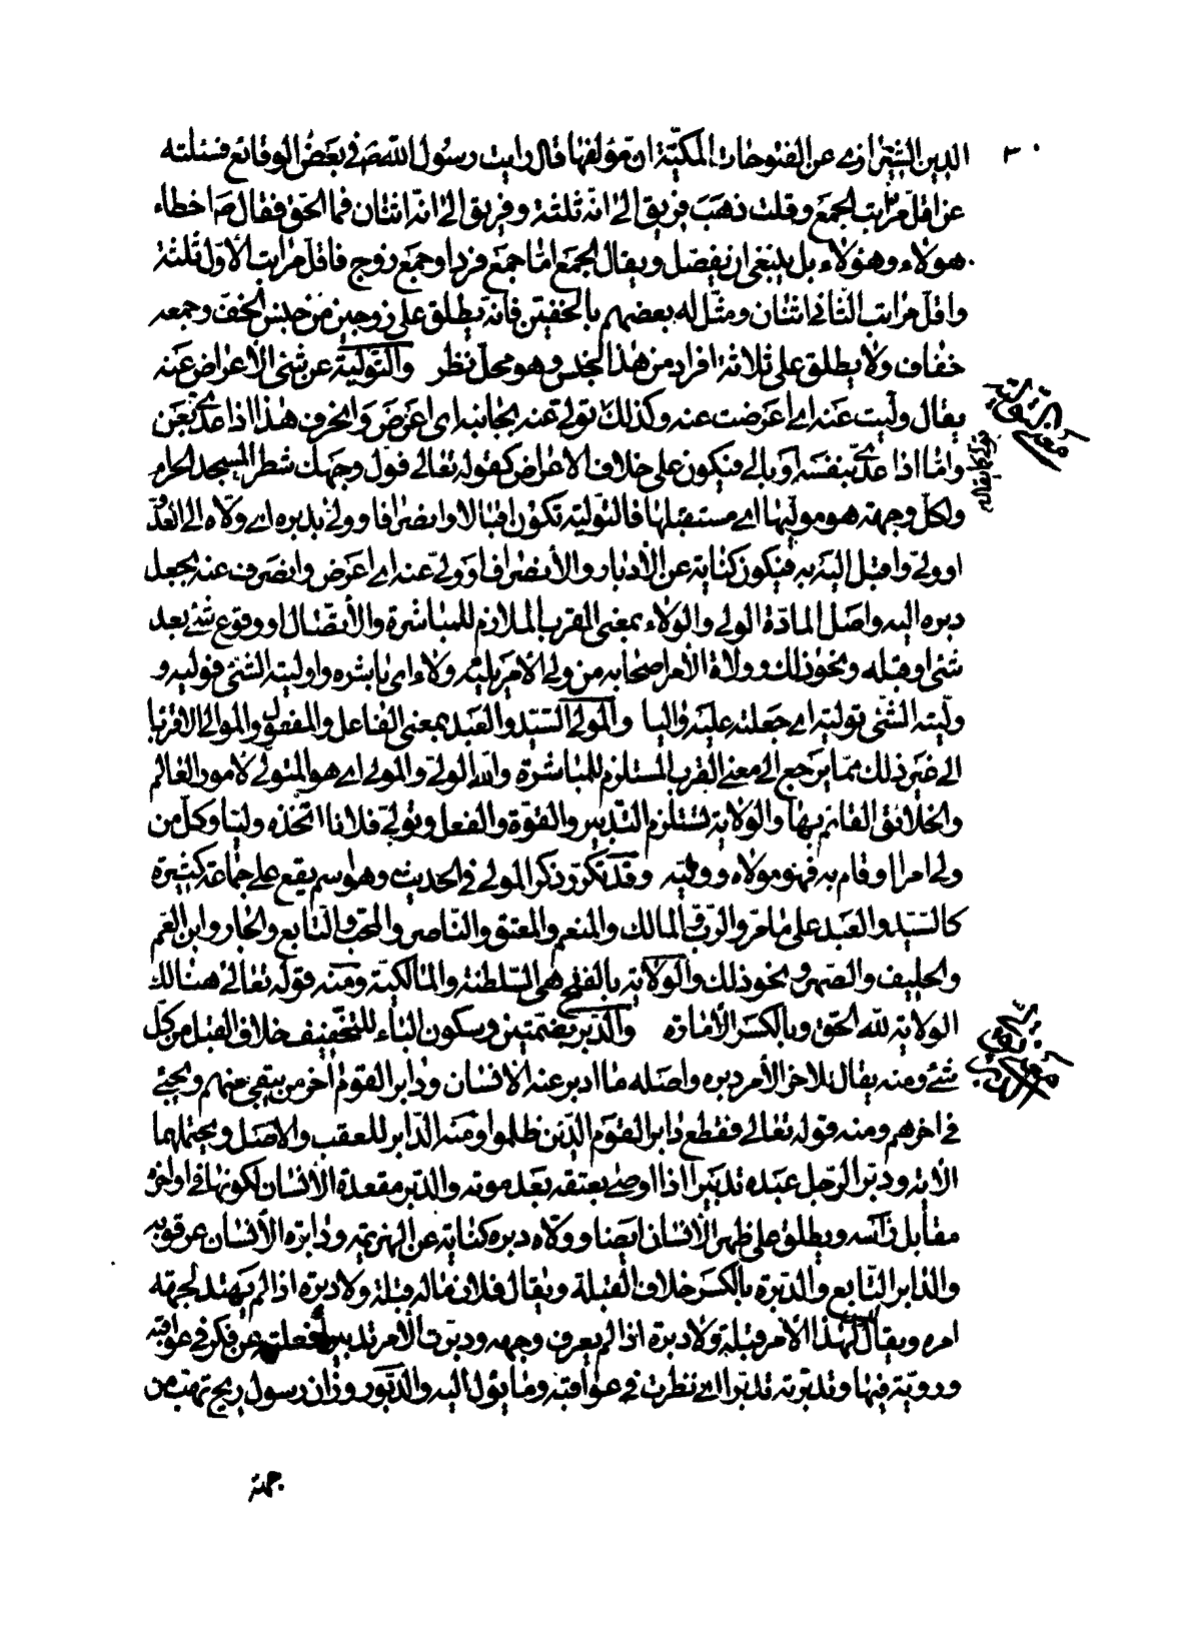 ٣٠
الدين الشيرازي عن الفتوحات المكيّة ان مؤلفها قال رايت رسول الله ص في بعض الوقائع فسئلته
عن اقل مراتب الجمع وقلت ذهب فريق الى انه ثلثة وفريق الى انه اثنان فما الحق فقال ص اخطاء
هؤلاء وهؤلاء بل ينبغي ان يفصل ويقال الجمع امّا جمع فرد او جمع زوج فاقل مراتب الأول ثلثة
واقل مراتب الثاني اثنان ومثّل له بعضهم بالخفين فانه يطلق على زوجين من جنس الخف وجمعه
خفاف ولا يطلق على ثلاثة افراد من هذا الجنس وهو محل نظر والتولية عن شئ الأعراض عنه
يقال وليت عنه اي اعرضت عنه وكذلك تولى عنه بجانبه اي اعرض وانحرف هذا اذا عدّي بعن
وامّا اذا عدّي بنفسه او بالى فيكون على خلاف الاعراض كقوله تعالى فول وجهك شطر المسجد الحرام
ولكل وجهة هو موليها اي مستقبلها فالتولية تكون اقبالا وانصرافا وولى بدبره اي ولاه الى العدوّ
او ولّى واقبل اليه به فيكون كناية عن الأدبار والأنصراف او ولى عنه اي اعرض وانصرف عنه بجعل
دبره اليه واصل المادة الولي والولاء بمعنى القرب الملازم للمباشرة والأتصال او وقوع شئ بعد
شئ او قبله ونحو ذلك وولاة الأمر اصحابه من ولي الأمر يليه ولاء اي باشره واوليته الشئ فوليه و
وليته الشئ تولية اي جعلته عليه واليا والمولى السيّد والعبد بمعنى الفاعل والمفعول والموالى الاقربا
الى غير ذلك مما يرجع الى معنى القرب المستلزم للمباشرة والله الولي والمولى اي هو المتولّي لامور العالم
والخلائق القائم بها والولاية تستلزم التدبير والقوة والفعل وتولّى فلانا اتخذه وليّا وكل من
ولي امرا وقام به فهو مولاه ووليّه وقد تكرر ذكر المولى في الحديث وهو اسم يقع على جماعة كثيرة
كالسيّد والعبد على ما مرّ والرب والمالك والمنعم والمعتق والناصر والمحب والتابع والجار وابن العم
والحليف والصهر ونحو ذلك والولاية بالفتح هي السلطنة والمالكية ومنه قوله تعالى هنالك
الولاية لله الحق وبالكسر الأمارة والدبر بضمتين وسكون الباء للتخفيف خلاف القبل من كل
شئ ومنه يقال لاخر الأمر دبره واصله ما ادبر عنه الانسان ودابر القوم آخر من يبقى منهم ويجئ
في اخرهم ومنه قوله تعالى فقطع دابر القوم الذين ظلموا ومنه الدابر للعقب والاصل ويحتملهما
الآية ودبر الرجل عبده تدبيرا اذا اوصى بعتقه بعد موته والدبر مقعدة الأنسان لكونها في اواخره
مقابل رأسه ويطلق على ظهر الأنسان ايضا وولاه دبره كناية عن الهزيمة ودابرة الأنسان عرقوبه
والدابر التابع والدبرة بالكسر خلاف القبلة ويقال فلان ماله قبلة ولا دبرة اذا لم يهتد لجهة
امره ويقال ليس لهذا الأمر قبلة ولا دبرة اذا لم يعرف وجهه ودبرت الأمر تدبيرا فعلته عن فكر في عواقبه
وروية فيها وتدبرته تدبرا اي نظرت في عواقبه وما يؤل اليه والدبور وزان رسول ريح تهب من
جهة
معنى التولية
معنى الدبر